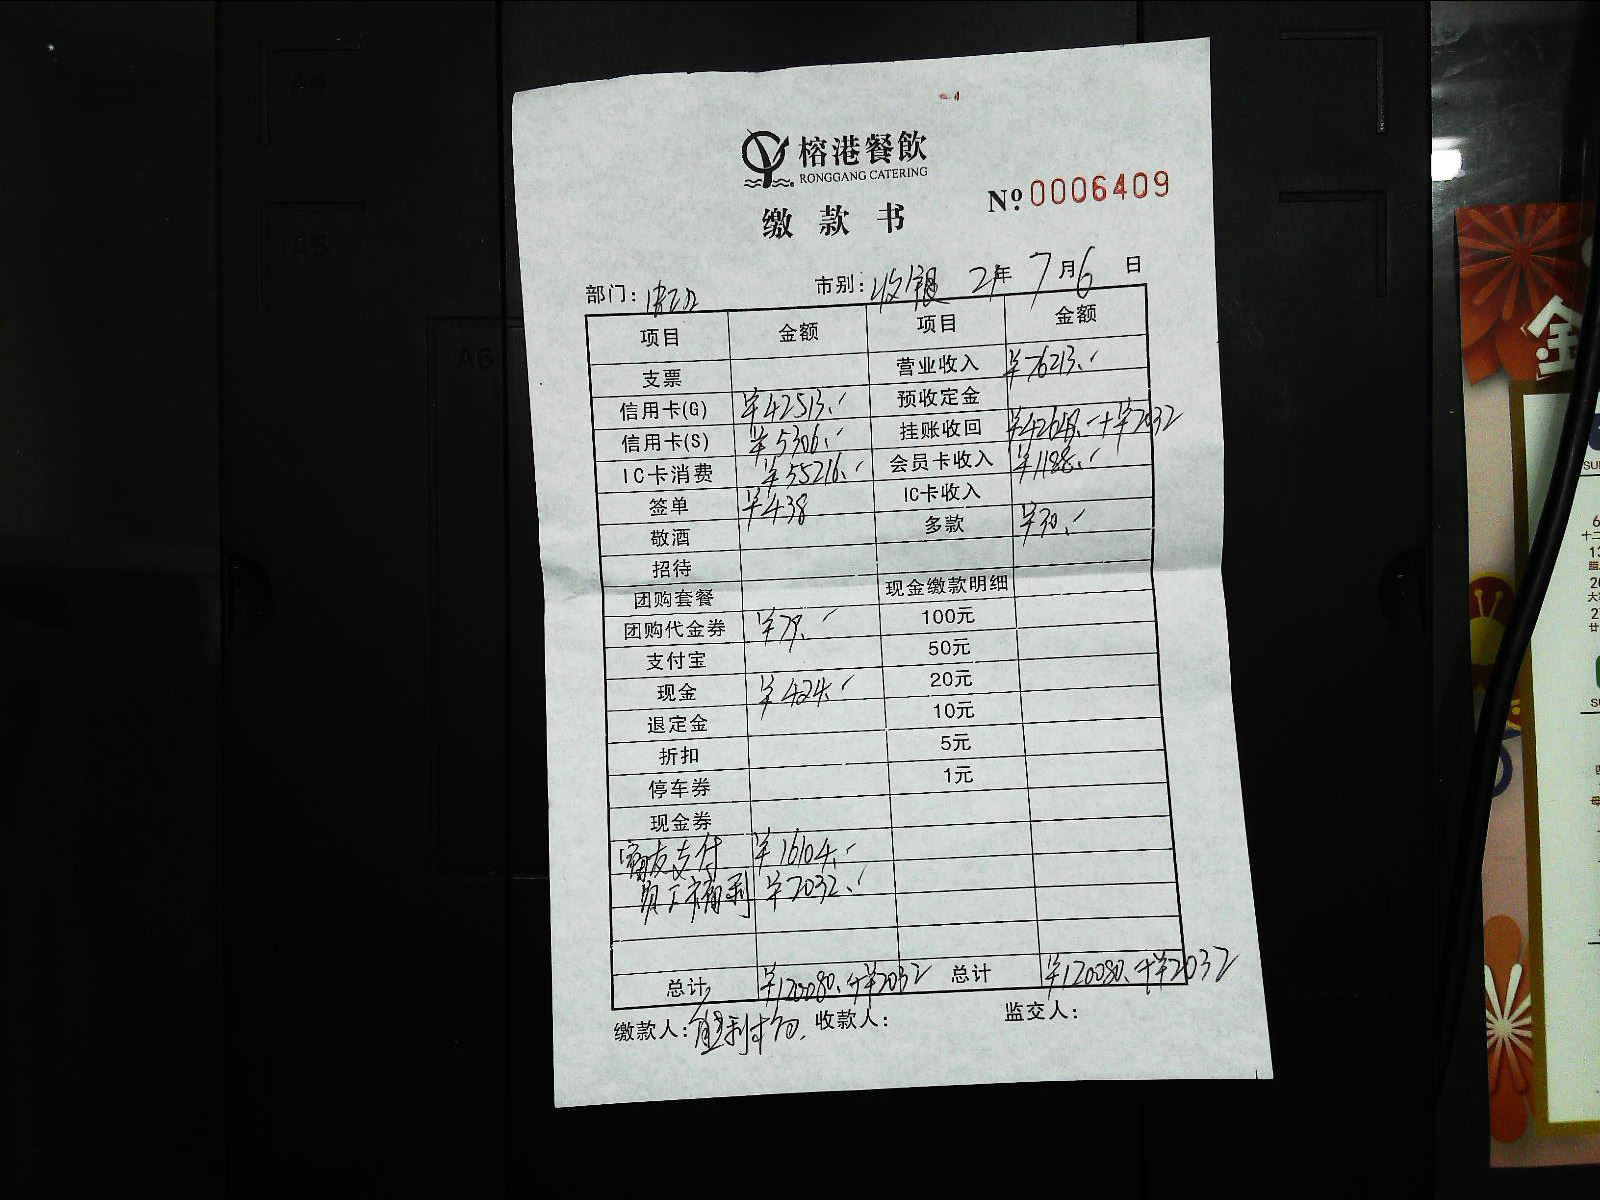 榕港餐飲
RONGGANG CATERING
缴款书
Nº 0006409
部门: 市别: 收银 21年 7月6日
项目 金额 项目 金额
支票 营业收入 ¥76213.-
信用卡(G) ¥42513.- 预收定金
信用卡(S) ¥5306.- 挂账收回 ¥42648.-+¥2032
IC卡消费 ¥55216.- 会员卡收入 ¥1188.-
签单 ¥438 IC卡收入
敬酒 多款 ¥30.-
招待
团购套餐 现金缴款明细
团购代金券 ¥79.- 100元
支付宝 50元
现金 ¥424.- 20元
退定金 10元
折扣 5元
停车券 1元
现金券
支付 ¥16104.-
员工卡福利 ¥2032.-
总计 ¥120080.+¥2032 总计 ¥120080.+¥2032
缴款人: 收款人: 监交人:
A4
A5
A6
金